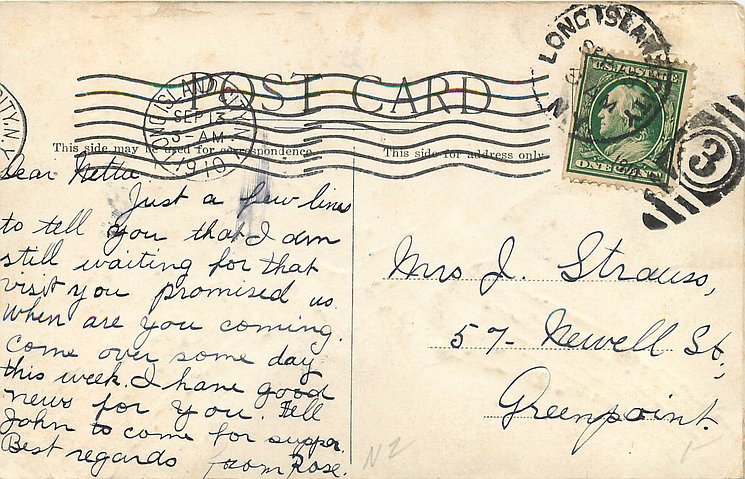 POST CARD
This side may be used for correspondence.
This side for address only.
LONG ISLAND CITY, N.Y.
SEP 13
5-AM
1910
LONG ISLAND
N.Y.
U.S. POSTAGE
ONE CENT
3
CITY, N.Y.
Dear Nettie
Just a few lines
to tell you that I am
still waiting for that
visit you promised us.
When are you coming.
Come over some day
this week. I have good
news for you. Tell
John to come for supper.
Best regards from Rose.
Mrs J. Strauss,
57- Newell St,
Greenpoint.
NZ